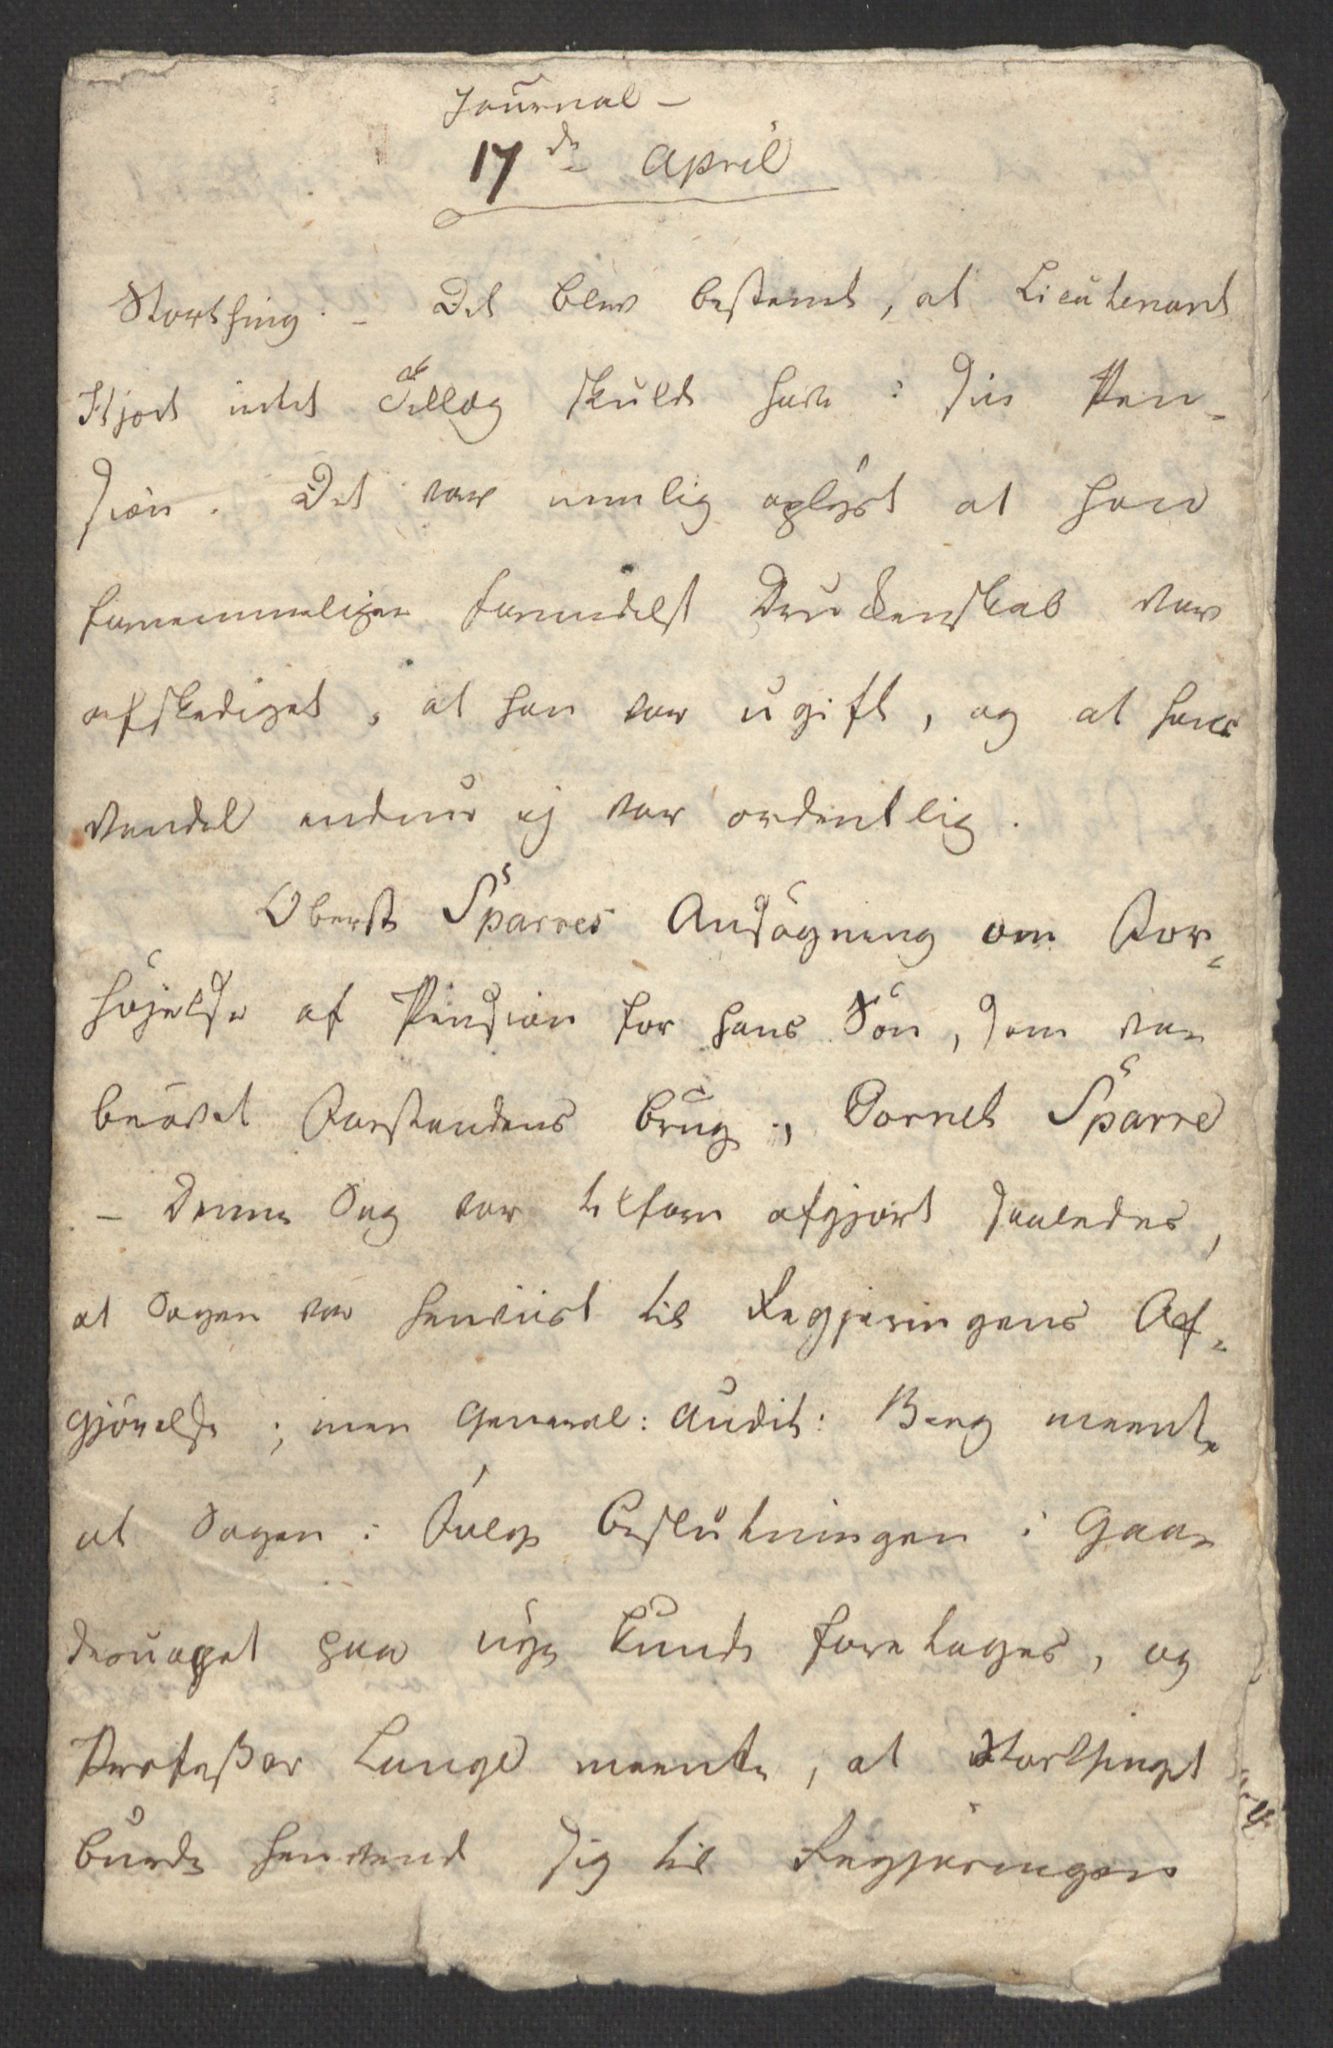 Journal –
17de April
Storthing. – Det blev bestemt, at Lieutenant
Hjort intet Tillæg skulde have i sin Pen-
sion. Det var nemlig oplyst at han
fornemmeligen formedelst Drukkenskab var
afskediget, at han var ugift, og at hans
Vandel endnu ej var ordentlig.
Oberst Sparres Ansøgning om For-
højelse af Pension for hans Søn, som var
berøvet Forstandens Brug, Cornet Sparre
– Denne Sag var tilforn afgjort saaledes,
at Sagen var henviist til Regjeringens Af-
gjørelse; men General: Audit: Berg meente
at Sagen i Følge Beslutningen i Gaar
derovet paa nye kunde foretages, og
Professor Lange meente, at Storthinget
burde henvende sig til Regjeringen